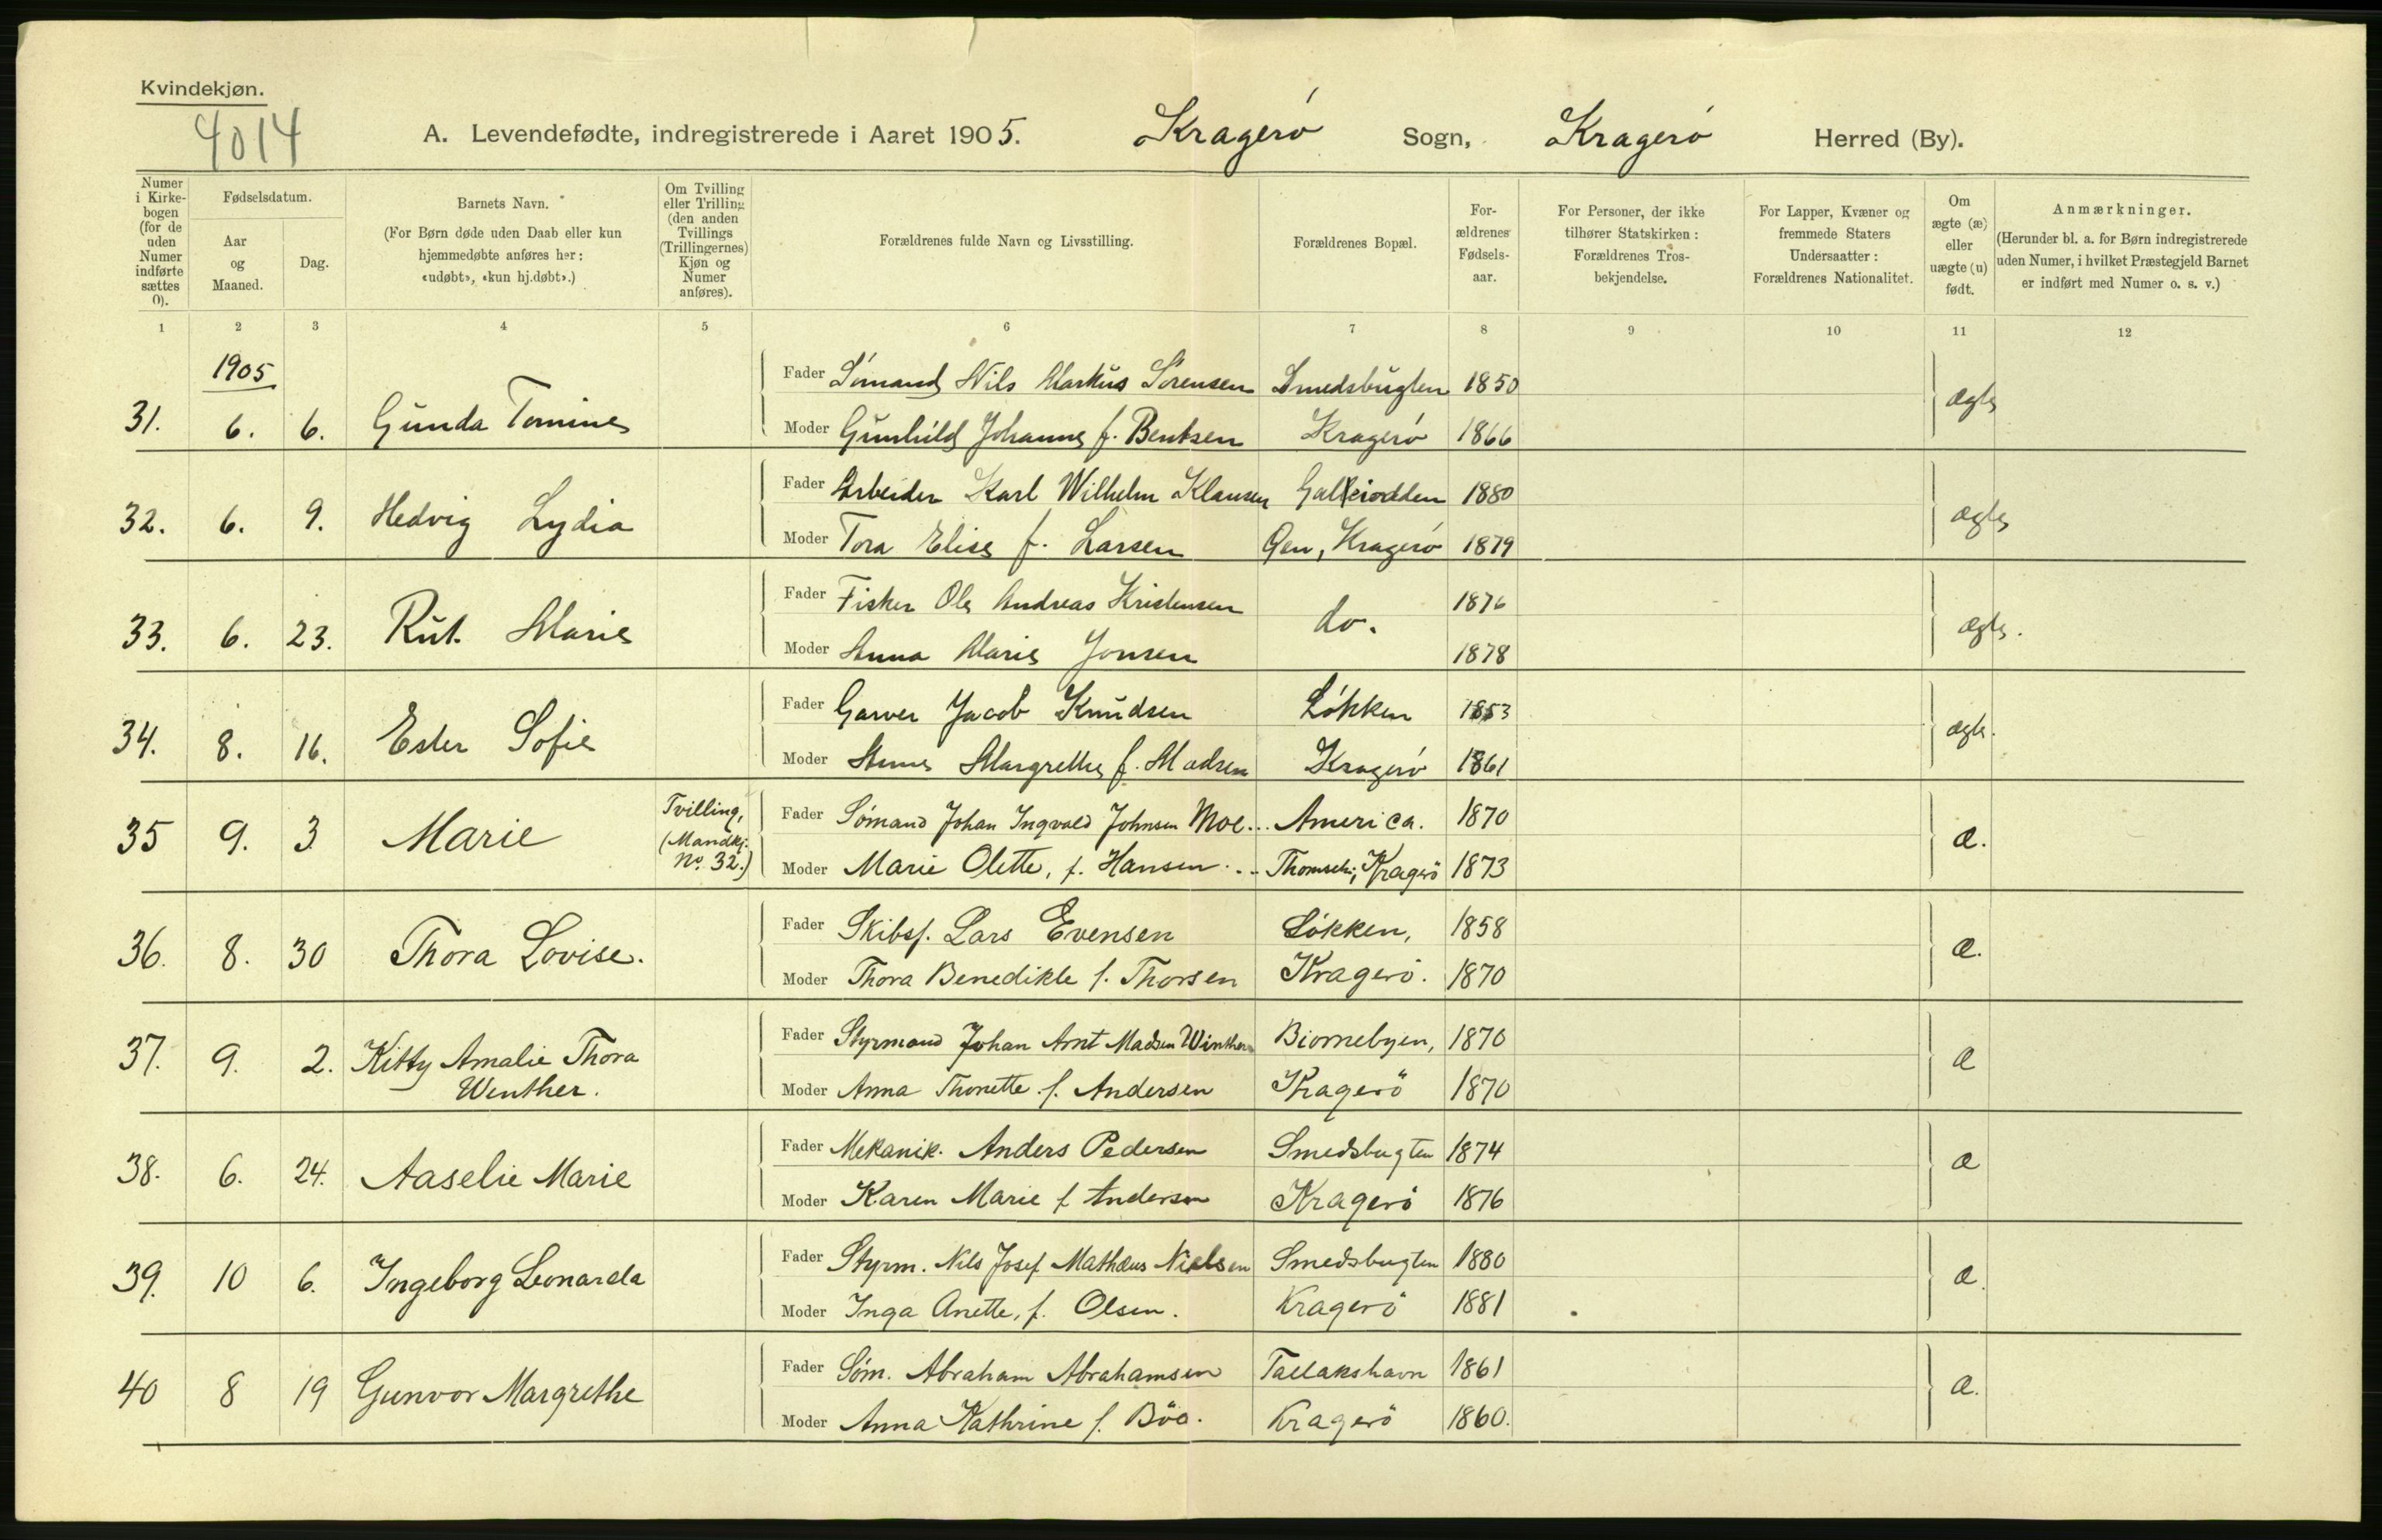 Kvindekjøn.
4014
A. Levendefødte, indregistrerede i Aaret 1905. Kragerø Sogn, Kragerø Herred (By).
Numer i Kirke-bogen (for de uden Numer indførte sættes 0).
Fødselsdatum.
Aar og Maaned.
Dag.
Barnets Navn.
(For Børn døde uden Daab eller kun hjemmedøbte anføres her: «udøbt», «kun hj.døbt».)
Om Tvilling eller Trilling (den anden Tvillings (Trillingernes) Kjøn og Numer anføres).
Forældrenes fulde Navn og Livsstilling.
Forældrenes Bopæl.
For-ældrenes Fødsels-aar.
For Personer, der ikke tilhører Statskirken: Forældrenes Tros-bekjendelse.
For Lapper, Kvæner og fremmede Staters Undersaatter: Forældrenes Nationalitet.
Om ægte (æ) eller uægte (u) født.
Anmærkninger.
(Herunder bl. a. for Børn indregistrerede uden Numer, i hvilket Præstegjeld Barnet er indført med Numer o. s. v.)
1 2 3 4 5 6 7 8 9 10 11 12
1905
Fader Sømand Nils Markus Sørensen Smedsbugten 1850
31. 6. 6. Gunda Tomine ægte
Moder Gunhild Johanne f. Bentsen Kragerø 1866
Fader Arbeider Karl Wilhelm Klausen Galeiodden 1880
32. 6. 9. Hedvig Lydia ægte
Moder Tora Elise f. Larsen Øen, Kragerø 1879
Fader Fisker Ole Andreas Kristensen 1876
33. 6. 23. Rut Marie do. ægte.
Moder Anna Marie Jonsen 1878
Fader Garver Jacob Knudsen Løkken 1853
34. 8. 16. Ester Sofie ægte.
Moder Anne Margrethe f. Madsen Kragerø 1861
Fader Sømand Johan Ingvald Johnsen Moe... America. 1870
35 9. 3 Marie Tvilling, (Mandkj. No. 32.) æ.
Moder Marie Olette, f. Hansen... Kragerø 1873
Fader Skibsf. Lars Evensen Løkken, 1858
36. 8. 30 Thora Lovise. æ.
Moder Thora Benedikte f. Thorsen Kragerø. 1870
Fader Styrmand Johan Arnt Madsen Winther Biornebyen, 1870
37. 9. 2. Kitty Amalie Thora
Wenther. æ
Moder Anna Thonette f. Andersen Kragerø 1870
Fader Mekanik. Anders Pedersen Smedsbugten 1874
38. 6. 24. Aaselie Marie æ
Moder Karen Marie f Andersen Kragerø 1876
Fader Styrm. Nils Josef Mathæus Nielsen Smedsbugten 1880
39. 10 6. Ingeborg Leonarda æ.
Moder Inga Anette, f. Olsen. Kragerø 1881
Fader Søm. Abraham Abrahamsen Tallakshavn 1861
40 8 19 Gunvor Margrethe æ.
Moder Anna Kathrine f. Böe. Kragerø 1860.